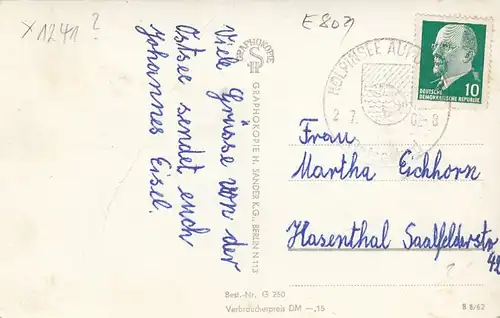 X 1241 ?
E 8021
Viele Grüsse von der
Ostsee sendet euch
Johannes Eisel.
GRAPHOKOPIE
GRAPHOKOPIE H. SANDER K.G., BERLIN N 113
KÖLPINSEE AUF
2. 7. 62-8
10
DEUTSCHE
DEMOKRATISCHE REPUBLIK
Frau
Martha Eichhorn
Hasenthal Saalfelderstr
42
Best.-Nr. G 250
Verbraucherpreis DM —,15
B 8/62